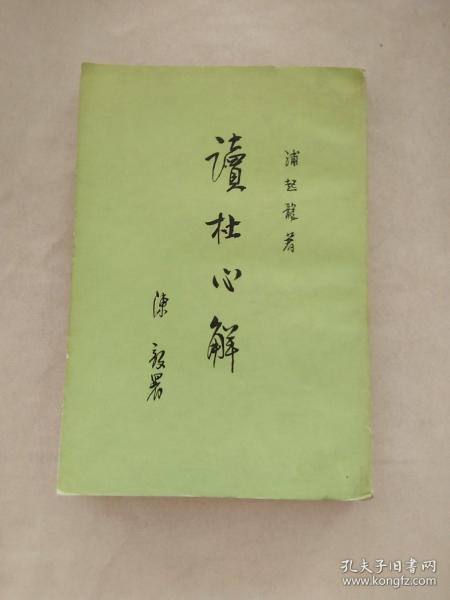 浦起龍著
讀杜心解
陳毅署
孔夫子旧书网
www.kongfz.com